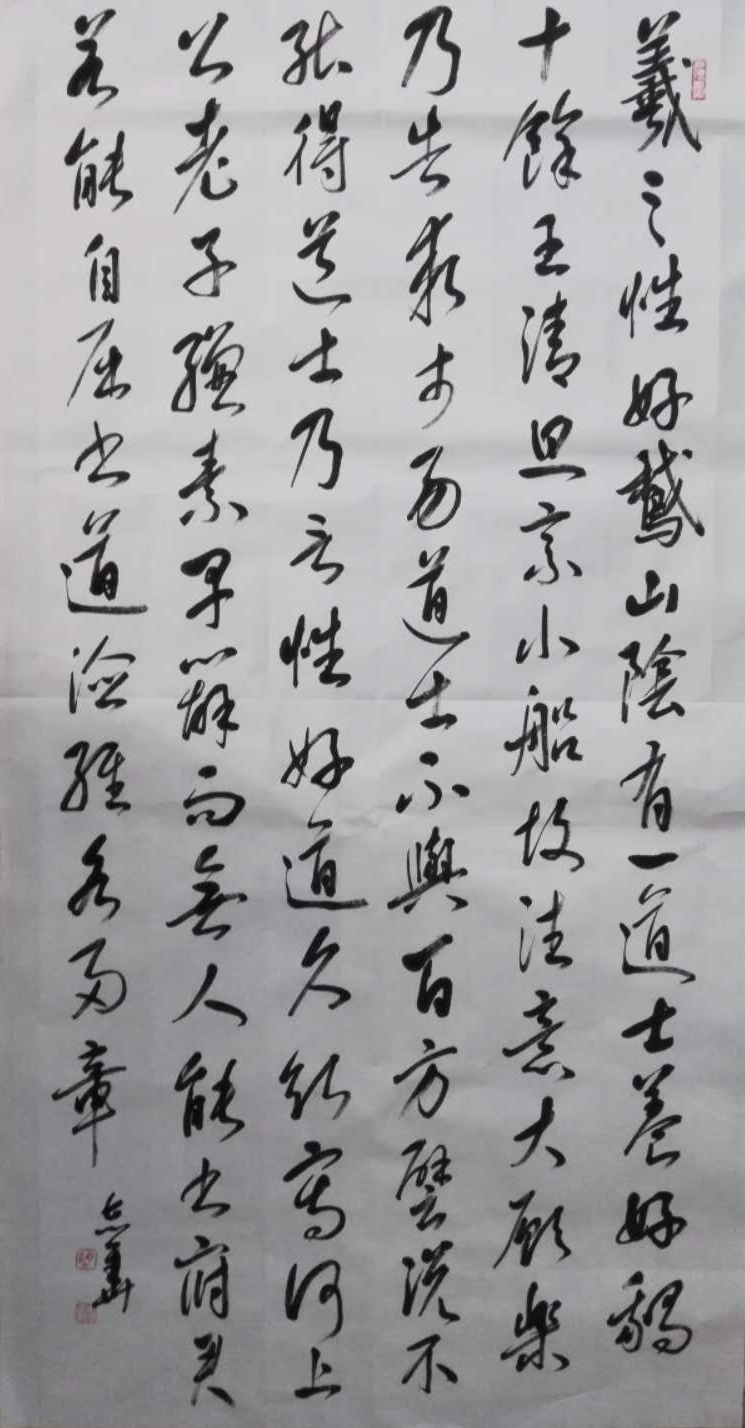 羲之性好鵝山陰有一道士養好鵝
十餘王清旦乘小船故往意大願樂
乃告求市易道士不與百方譬說不
能得道士乃言性好道久欲寫河上
公老子縑素早辦而無人能書府君
若能自屈書道德經各兩章